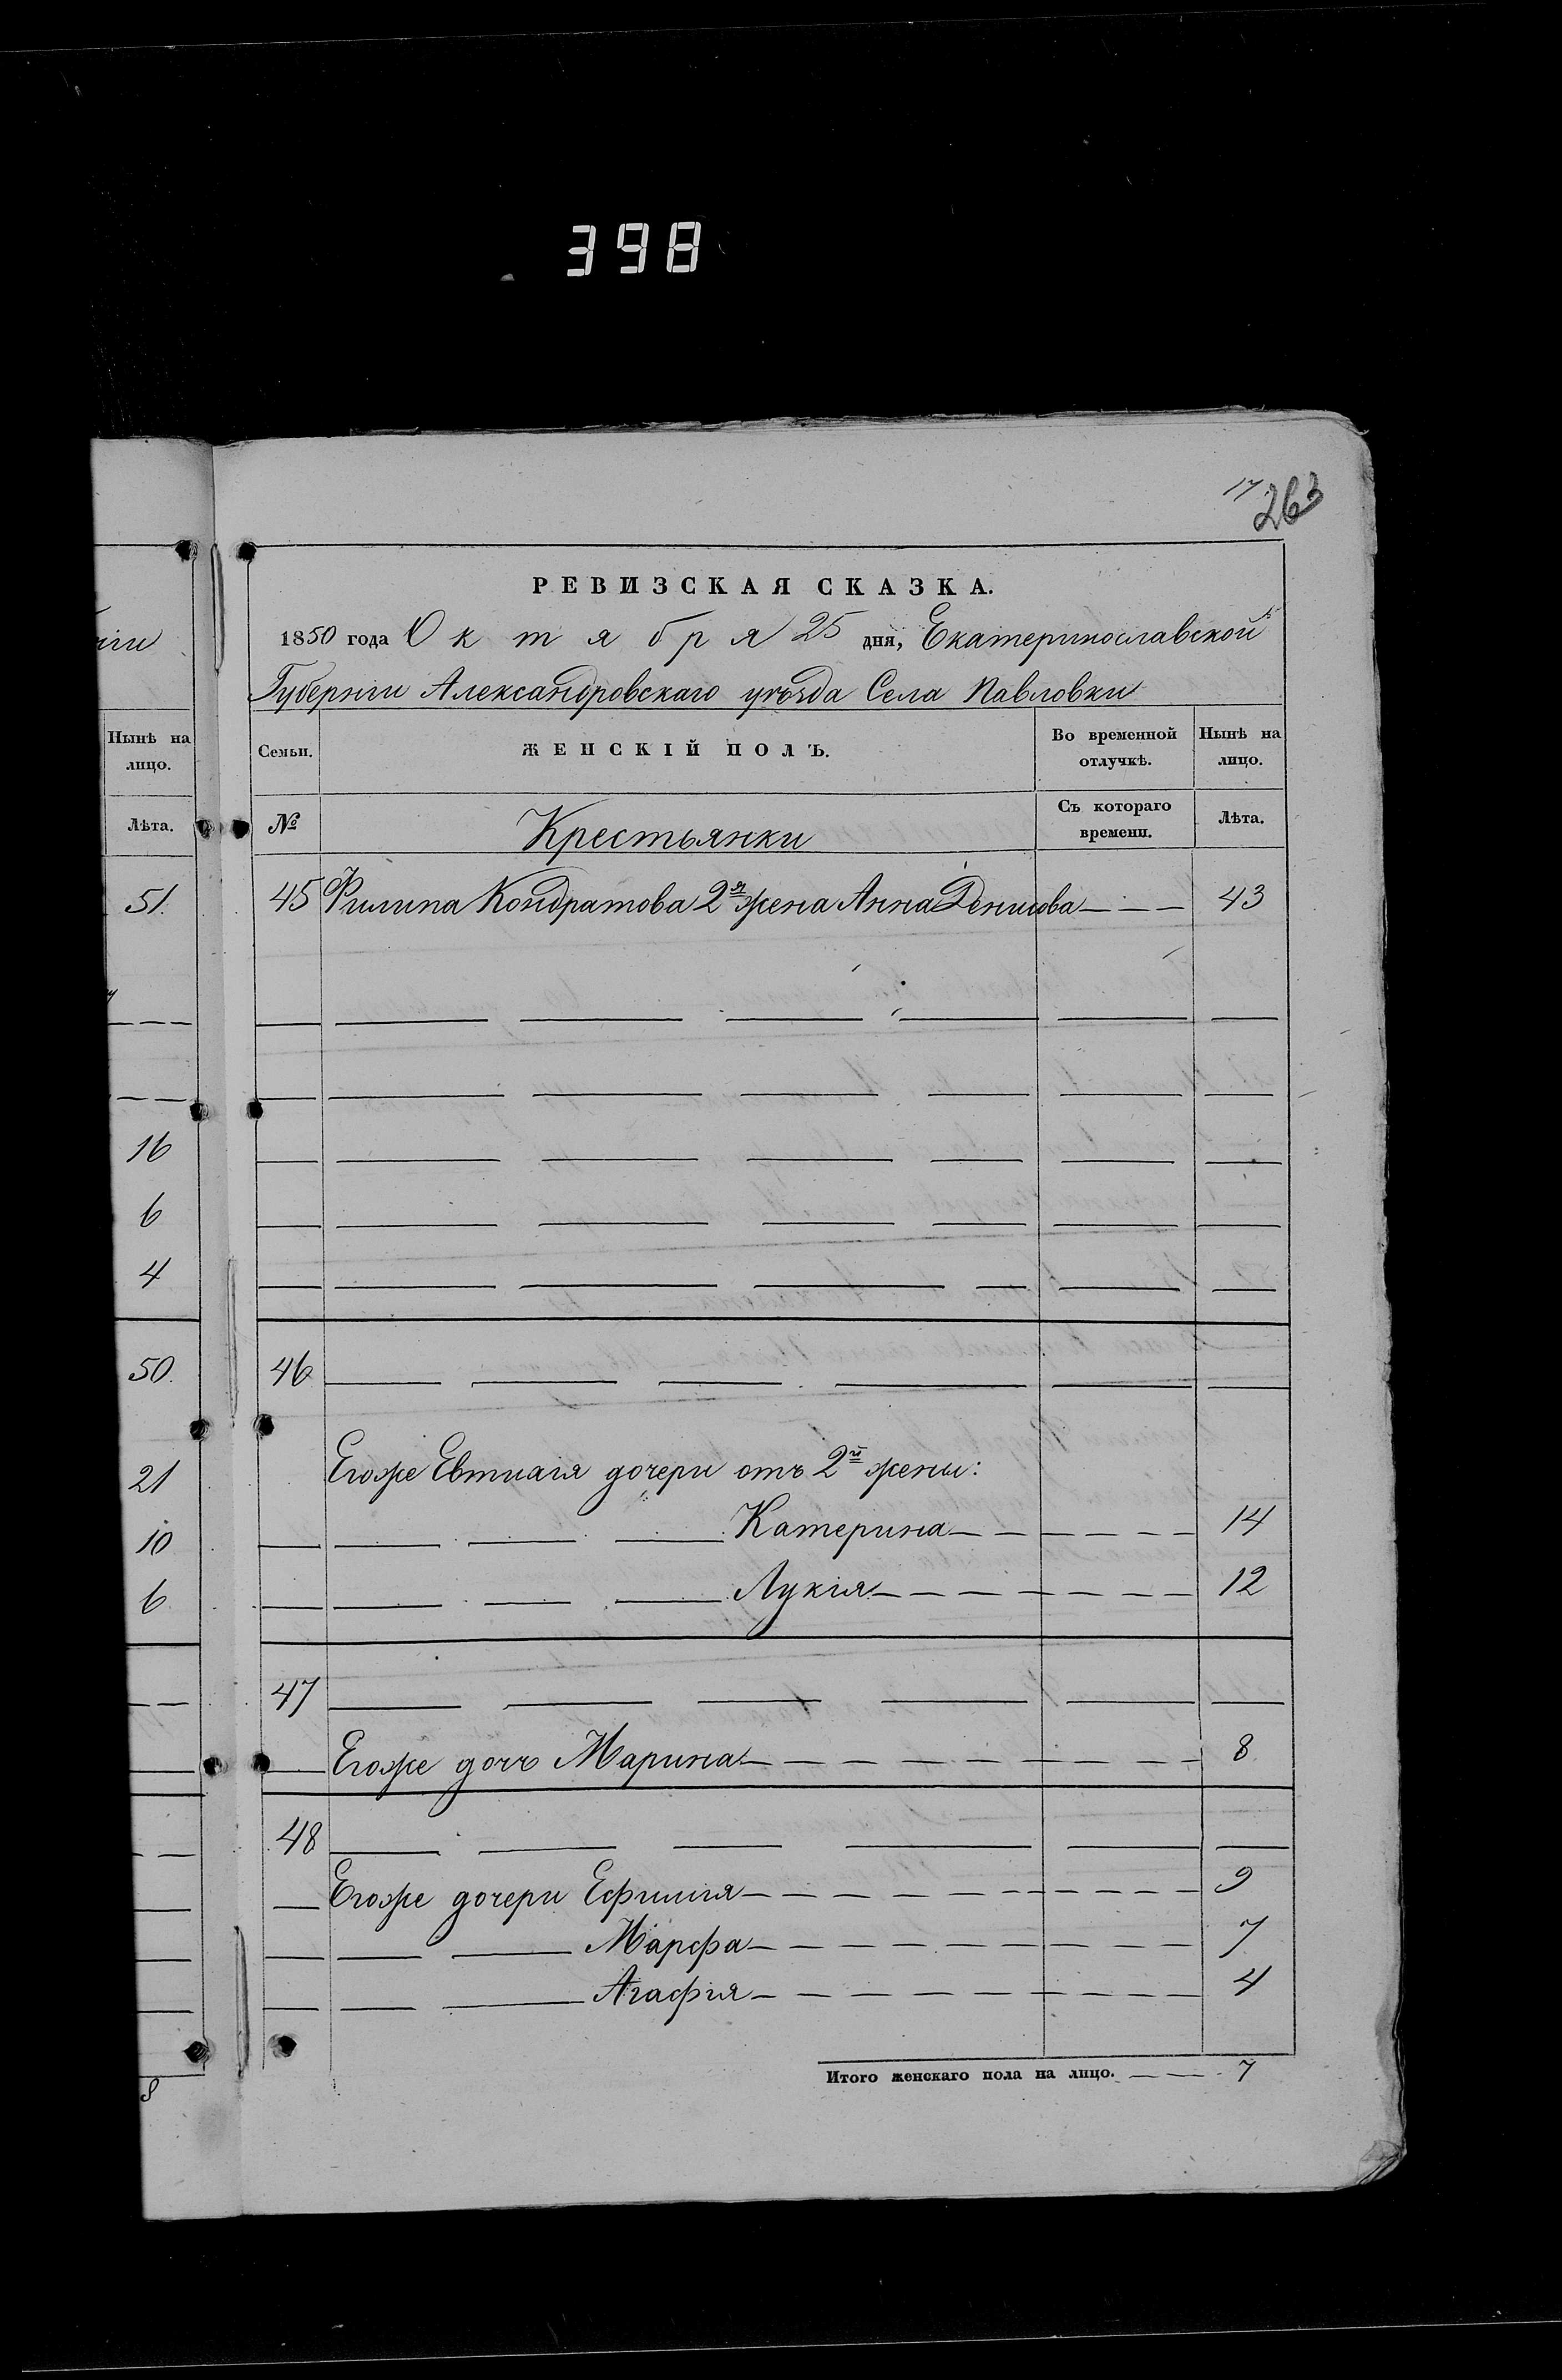 398
17
263
РЕВИЗСКАЯ СКАЗКА.
1850 года Октября 25 дня, Екатеринославской
Губерніи Александровскаго уѣзда Села Павловки
Нынѣ на лицо.
Лѣта.
51.
16
6
4
50.
21
10
6
8
Семьи. ЖЕНСКІЙ ПОЛЪ. Во временной отлучкѣ. Нынѣ на лицо.
№ Крестьянки Съ котораго времени. Лѣта.
45 Филипа Кондратова 2я жена Анна Денисова 43
46
Егоже Евтихія дочери отъ 2й жены:
Катерина 14
Лукія 12
47
Егоже дочь Марина 8
48
Егоже дочери Ефимія 9
Марфа 7
Агафія 4
Итого женскаго пола на лицо. 7